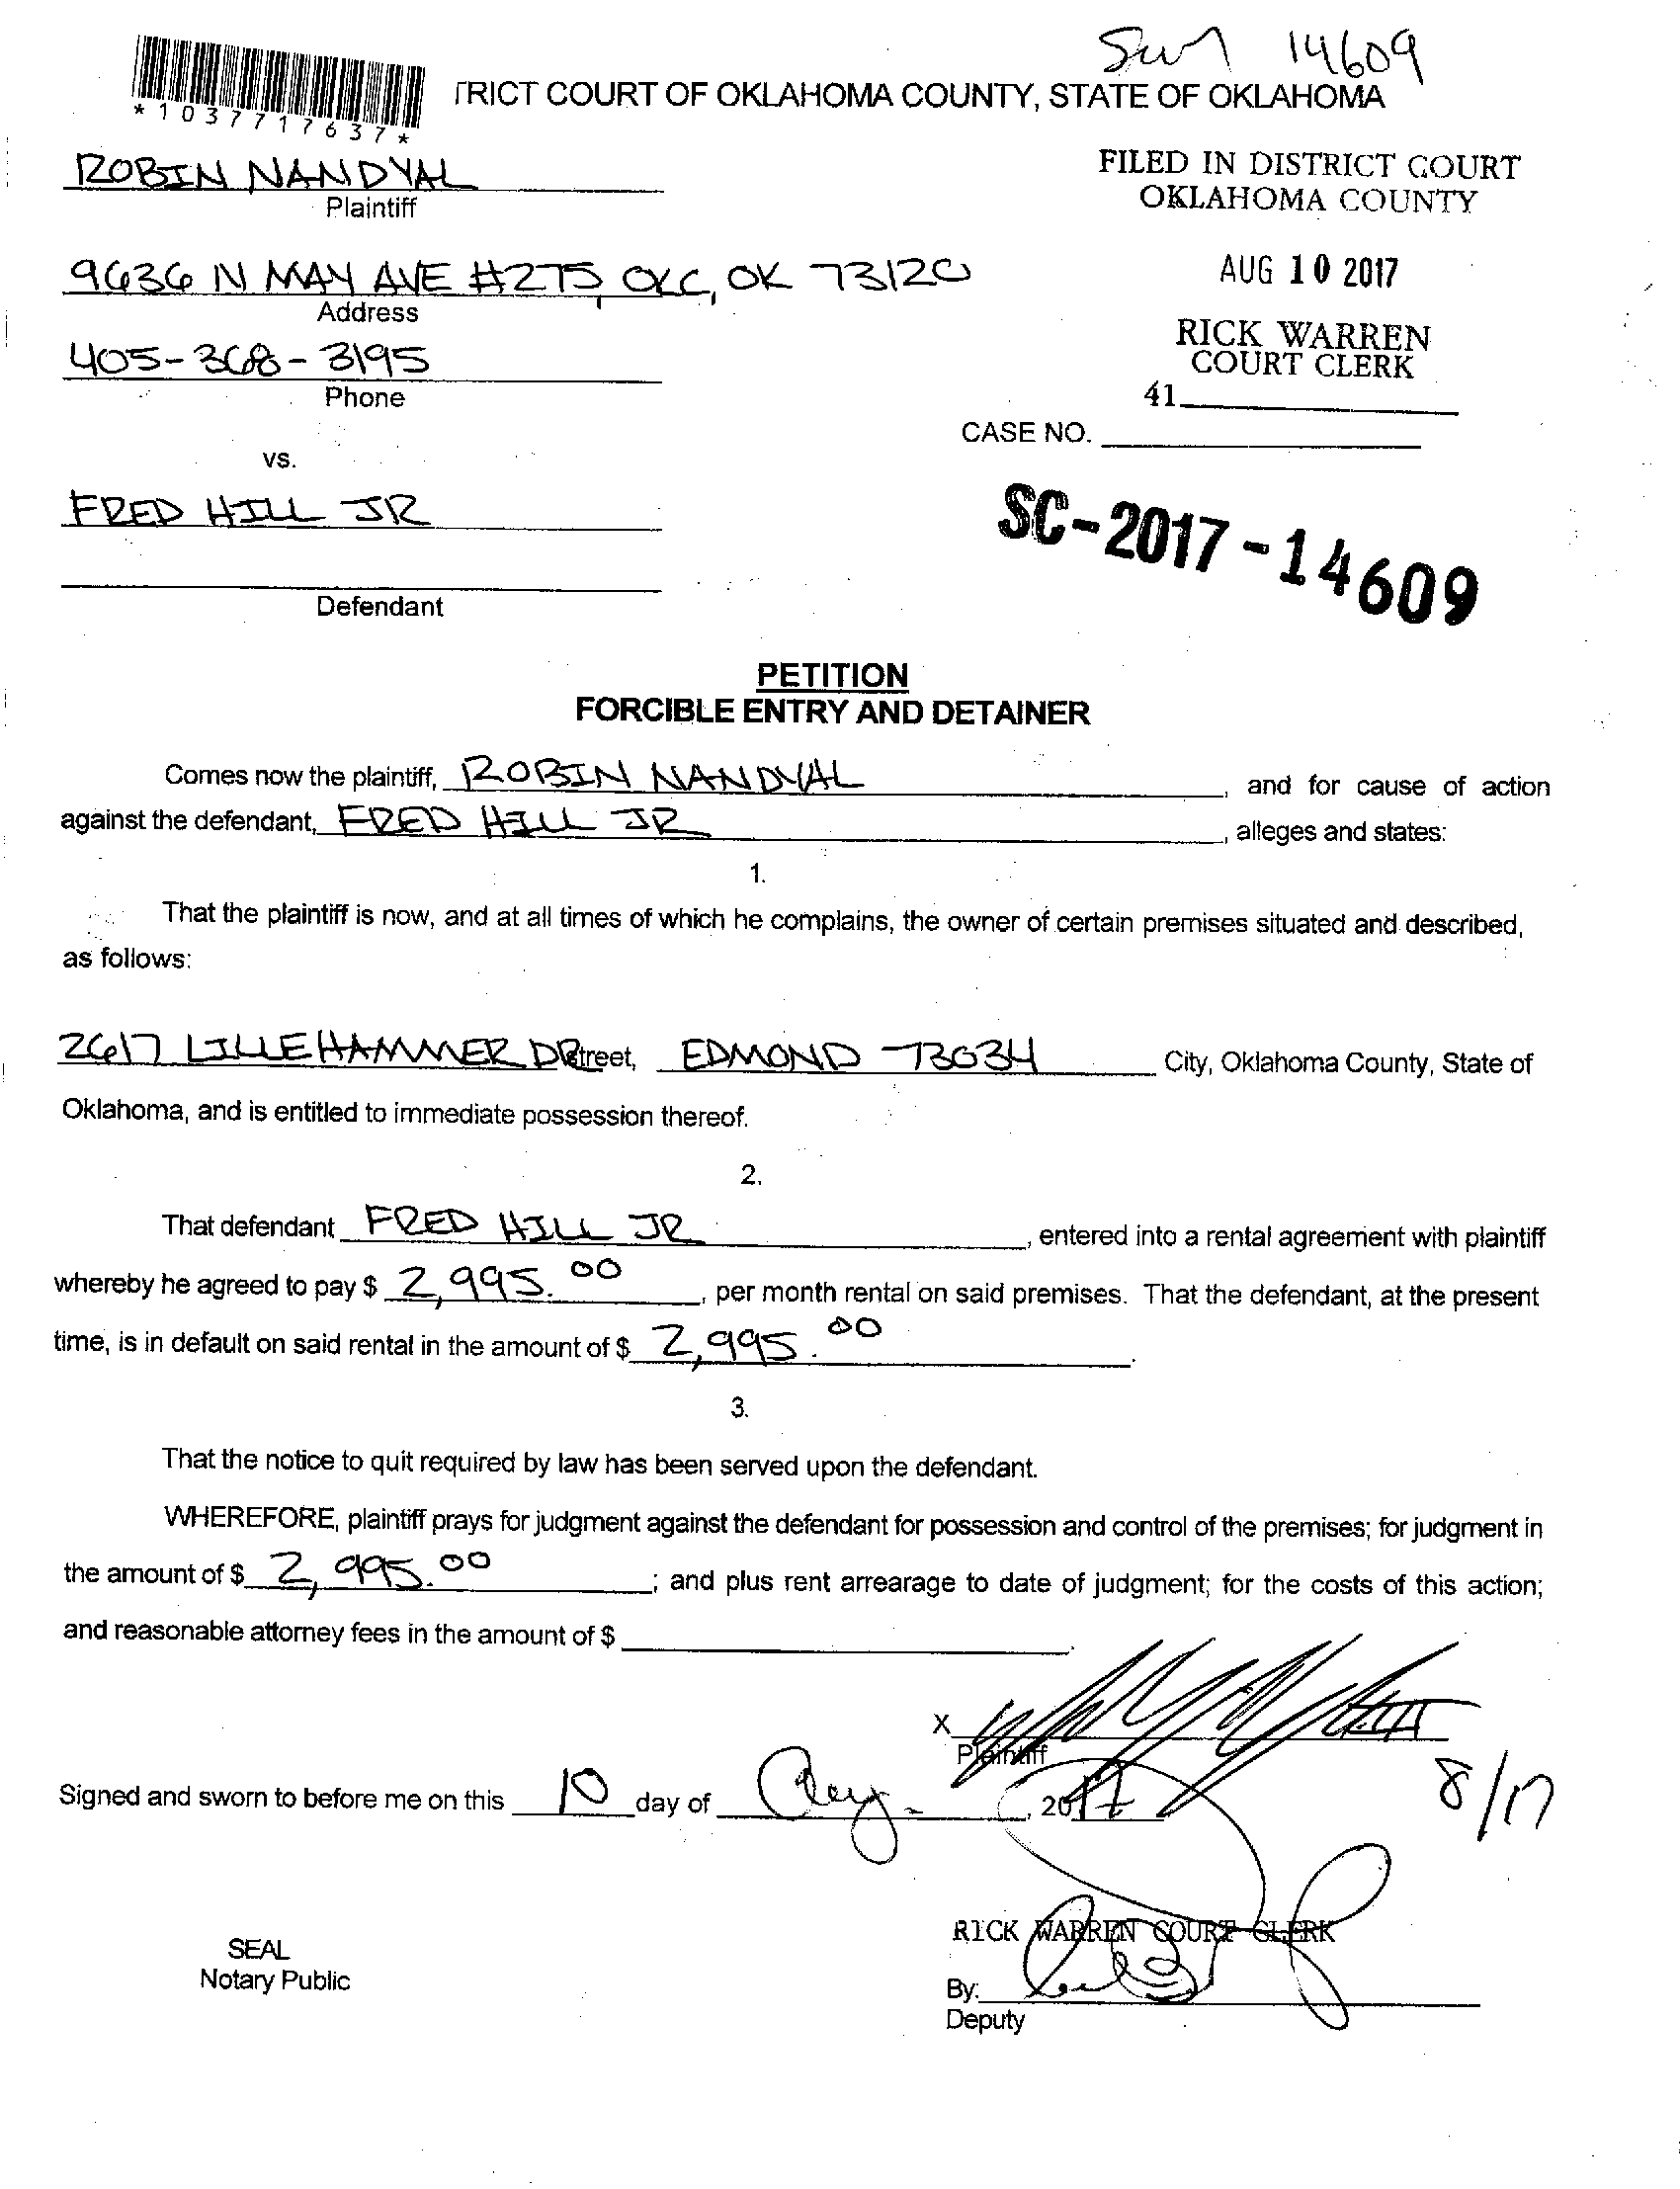 14609
*1037717637*
TRICT COURT OF OKLAHOMA COUNTY, STATE OF OKLAHOMA
ROBIN NANDYAL
Plaintiff
FILED IN DISTRICT COURT
OKLAHOMA COUNTY
9636 N MAY AVE #275, OKC, OK 73120
Address
AUG 10 2017
405-368-3195
Phone
RICK WARREN
COURT CLERK
41
CASE NO.
vs.
FRED HILL JR
SC-2017-14609
Defendant
PETITION
FORCIBLE ENTRY AND DETAINER
Comes now the plaintiff, ROBIN NANDYAL, and for cause of action
against the defendant, FRED HILL JR, alleges and states:
1.
That the plaintiff is now, and at all times of which he complains, the owner of certain premises situated and described,
as follows:
2617 LILLEHAMMER DR Street, EDMOND 73034 City, Oklahoma County, State of
Oklahoma, and is entitled to immediate possession thereof.
2.
That defendant FRED HILL JR, entered into a rental agreement with plaintiff
whereby he agreed to pay $ 2,995.00, per month rental on said premises. That the defendant, at the present
time, is in default on said rental in the amount of $ 2,995.00.
3.
That the notice to quit required by law has been served upon the defendant.
WHEREFORE, plaintiff prays for judgment against the defendant for possession and control of the premises; for judgment in
the amount of $ 2,995.00; and plus rent arrearage to date of judgment; for the costs of this action;
and reasonable attorney fees in the amount of $.
X
Plaintiff
8/17
Signed and sworn to before me on this 10 day of Aug., 2017
RICK WARREN COURT CLERK
SEAL
Notary Public
By:
Deputy